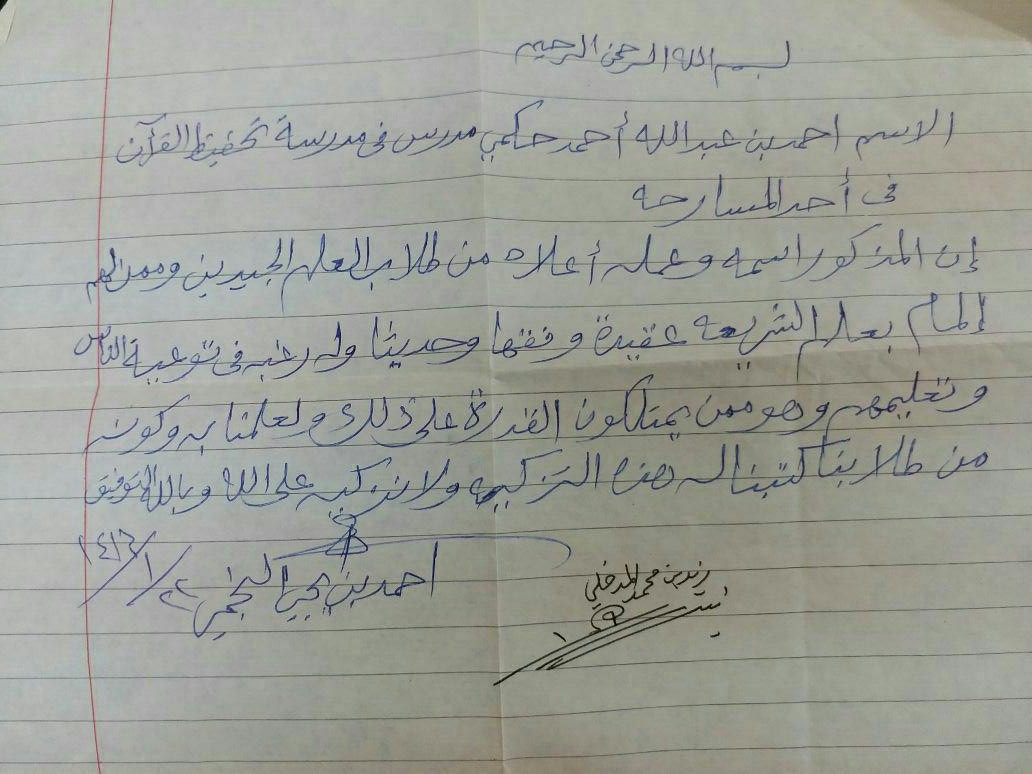 بسم الله الرحمن الرحيم
الاسم احمد بن عبدالله أحمد حكمي مدرس في مدرسة تحفيظ القرآن
في أحد المسارحه
إن المذكور اسمه وعمله أعلاه من طلاب العلم الجيدين وممن لهم
إلمام بعلم الشريعه عقيدة وفقها وحديثا وله رغبه في توعية الناس
وتعليمهم وهو ممن يمتلكون القدرة على ذلك ولعلمنا به وكونه
من طلابنا كتبنا له هذه التزكيه ولا نزكيه على الله وبالله التوفيق
احمد بن يحيى النجمي
زيد بن محمد المدخلي